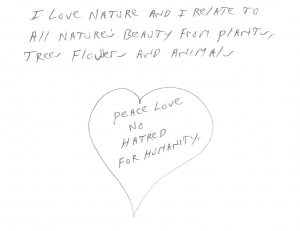 I LOVE NATURE AND I RELATE TO
All NATURE'S BEAUTY FROM PlANTS,
TREES FlOWERS AND ANIMALS
PEACE LOVE
NO
HATRED
FOR HUMANITY.